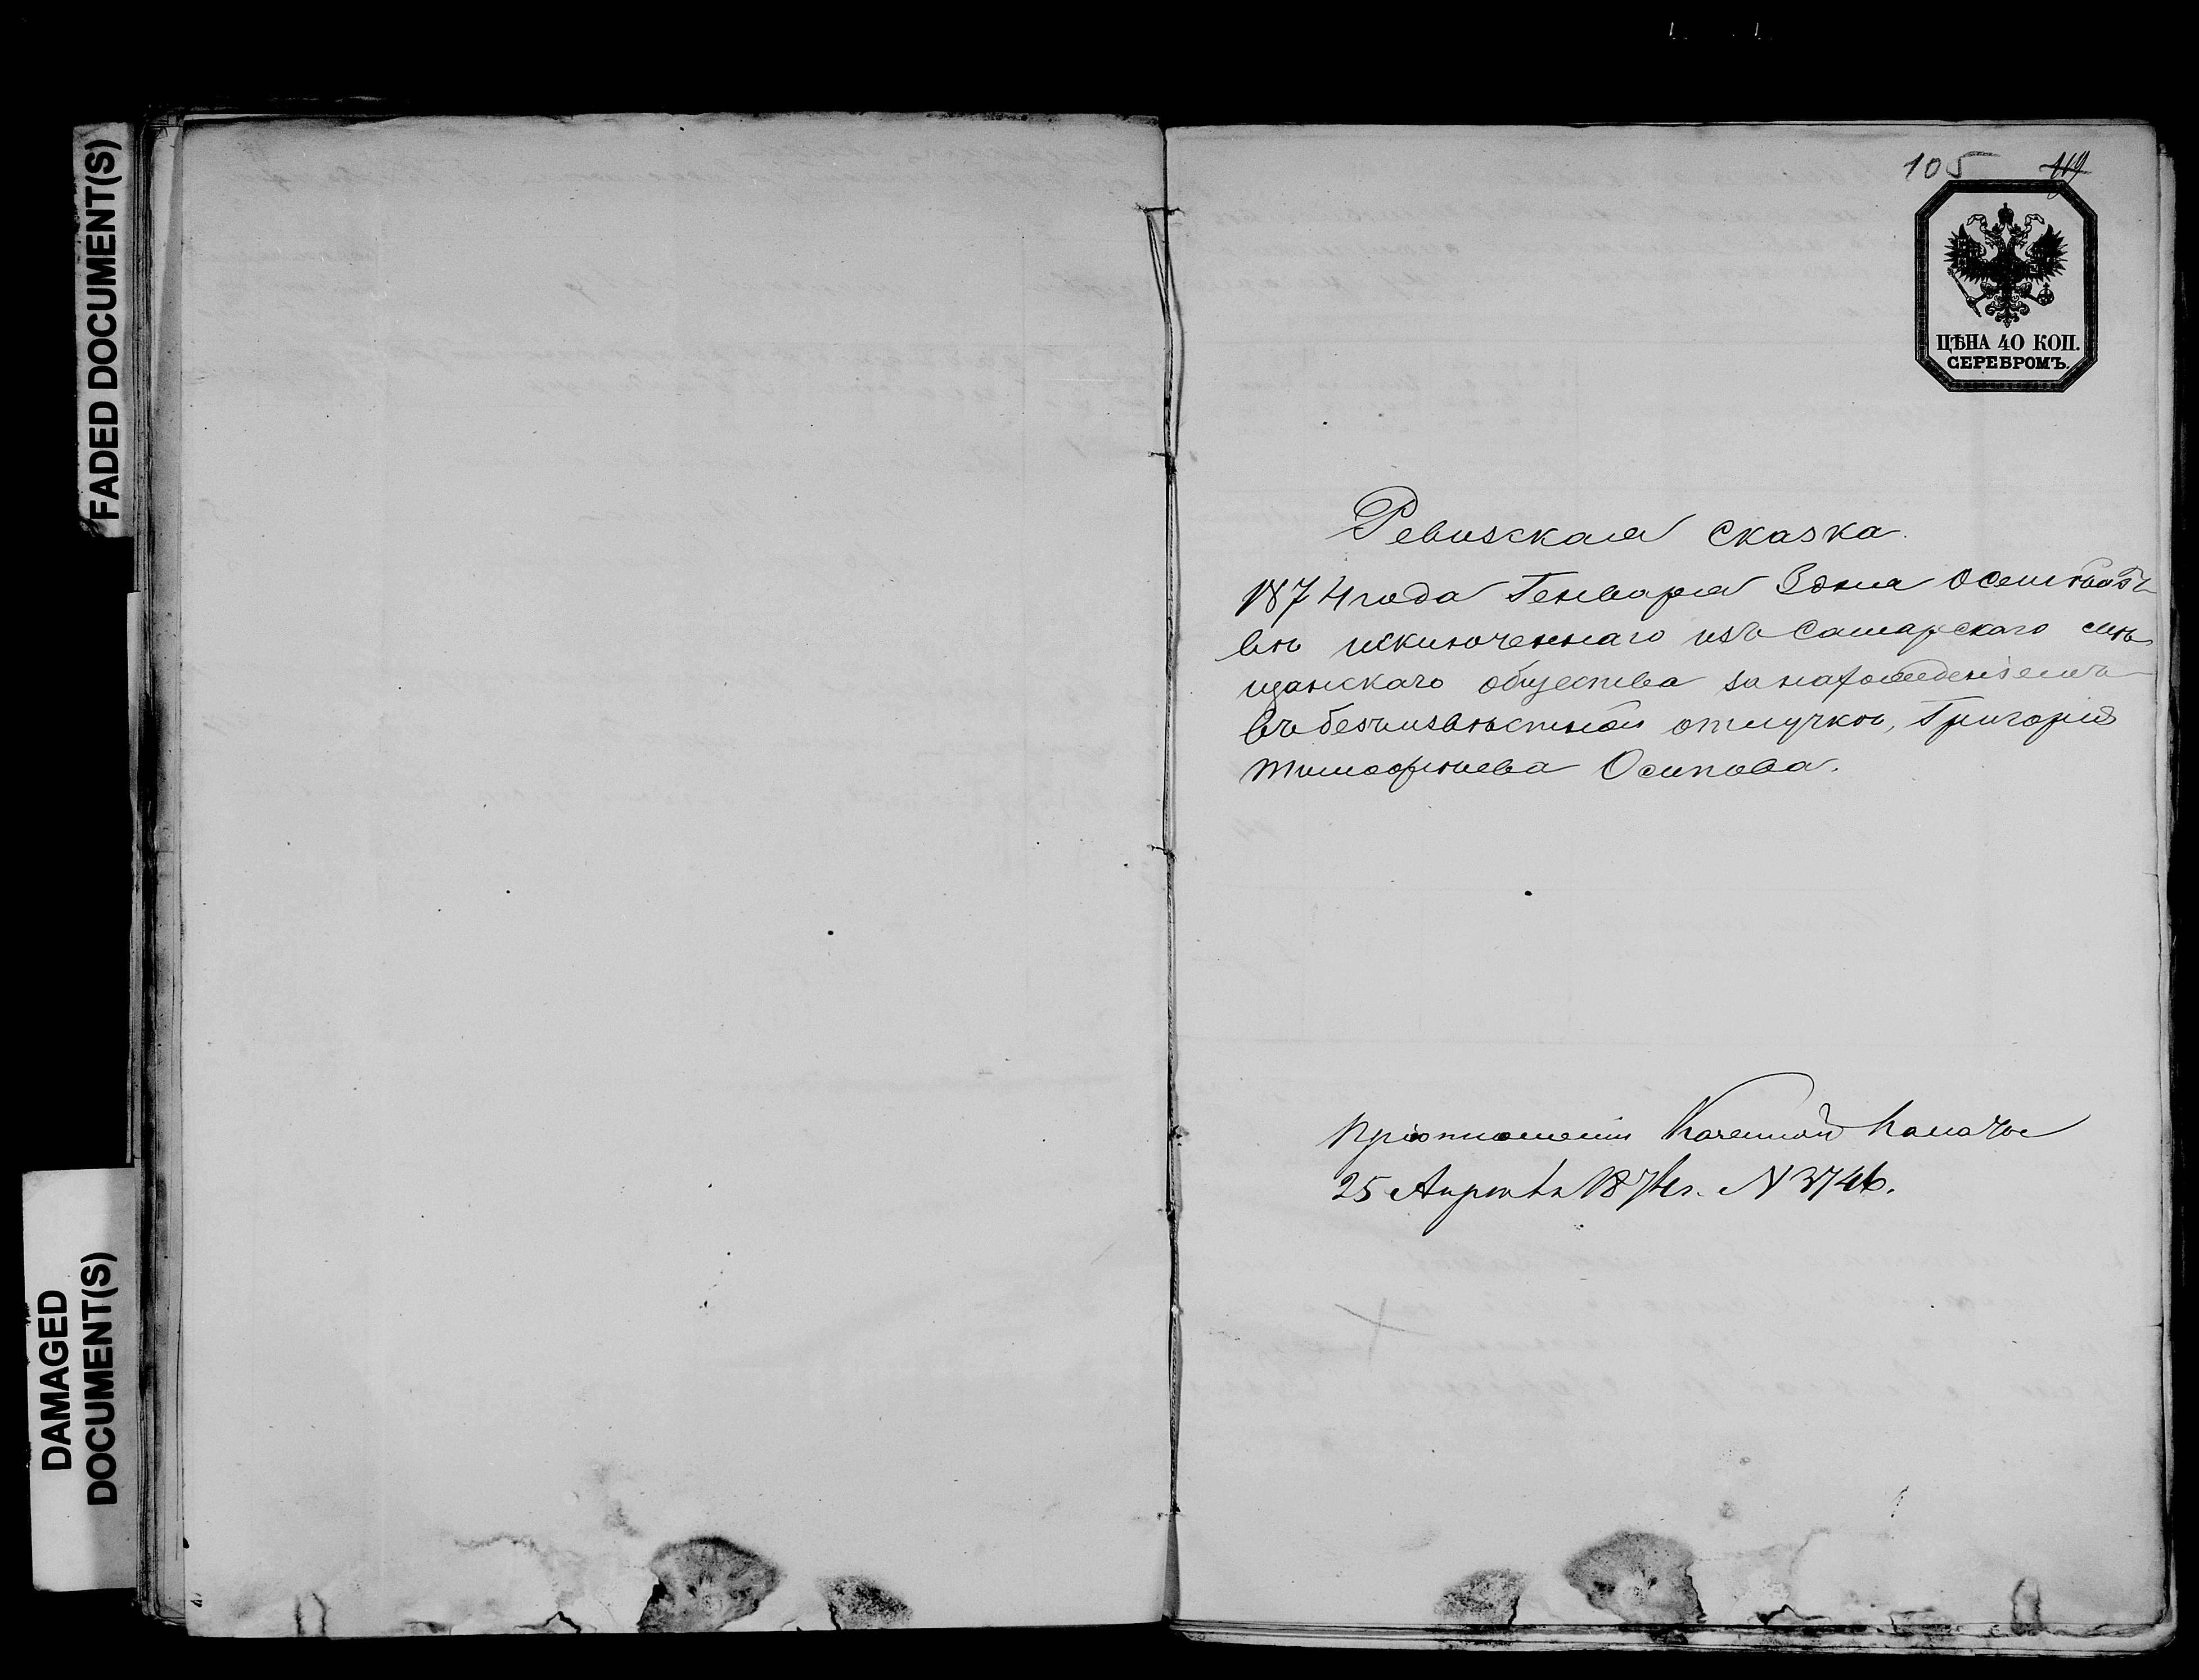 FADED DOCUMENT(S)
DAMAGED
DOCUMENT(S)
105 119
ЦѢНА 40 КОП.
СЕРЕБРОМЪ.
Ревизская сказка.
1874 года Генваря 3 дня о семействѣ исключеннаго изъ Самарскаго мѣ
щанскаго общества за нахожденіемъ
въ безъизвѣстной отлучкѣ, Григорія
Тимофѣева Осипова.
При отношеніи Казенной Палаты
25 Апрѣля 1874 г. N 3746.